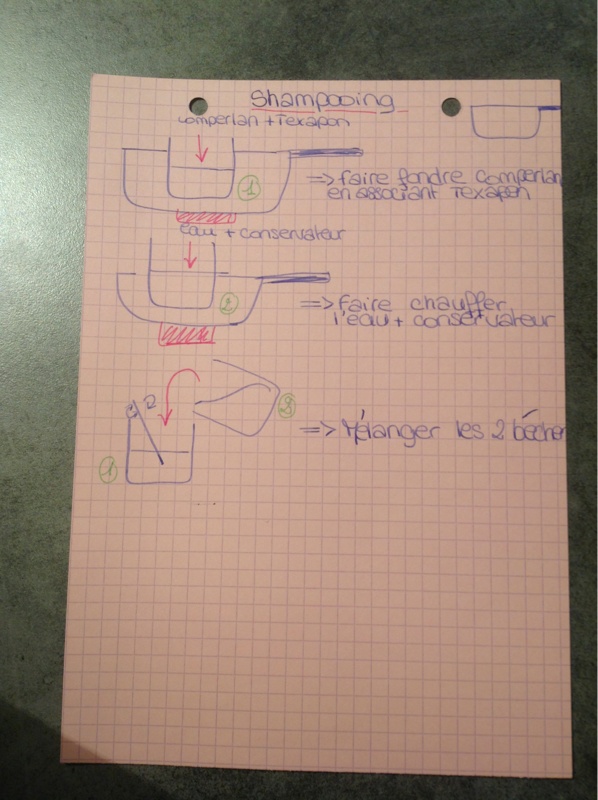 Shampooing
Comperlan + Texapon
1
=> faire fondre Comperlan
en associant Texapon
eau + conservateur
2
=> Faire chauffer
l'eau + conservateur
2
=> Mélanger les 2 bécher
1